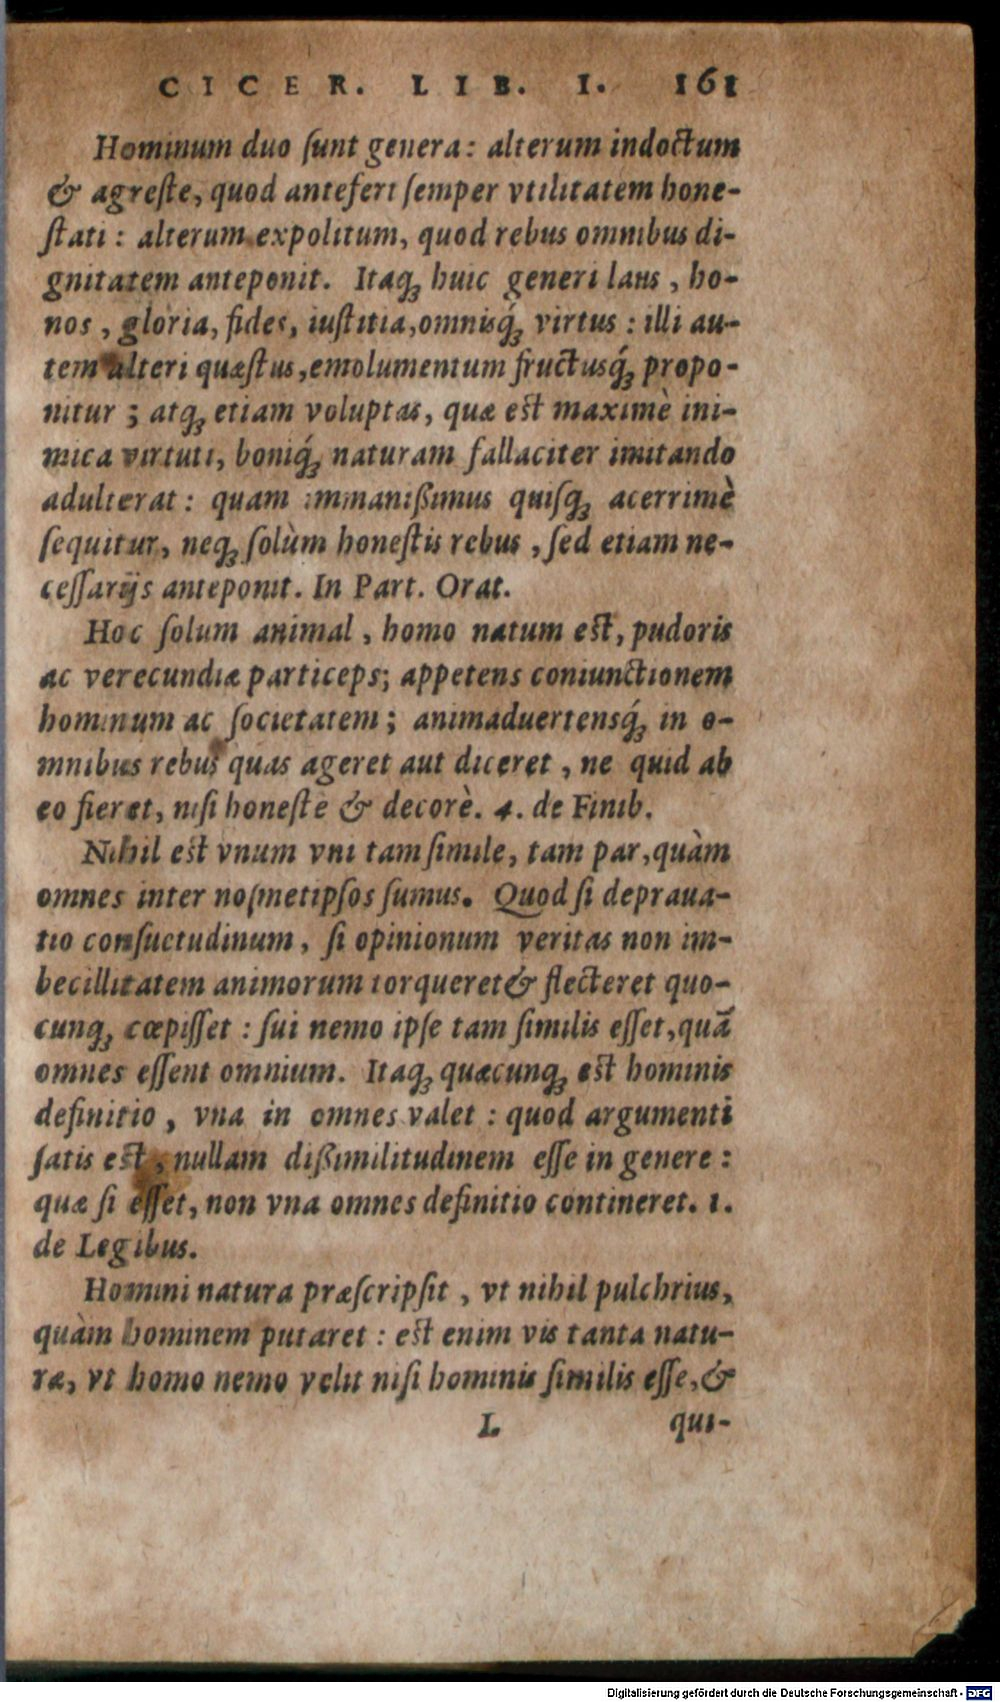 CICER. LIB. I. 161
Hominum duo ſunt genera: alterum indoctum
& agreſte, quod antefert ſemper vtilitatem hone-
ſtati: alterum expolitum, quod rebus omnibus di-
gnitatem anteponit. Itaq́; huic generi laus, ho-
nos, gloria, fides, iuſtitia, omnisq́; virtus: illi au-
tem alteri quæſtus, emolumentum fructusq́; propo-
nitur; atq; etiam voluptas, quæ est maximè ini-
mica virtuti, boniq́; naturam fallaciter imitando
adulterat: quam immanißimus quiſq; acerrimè
ſequitur, neq; ſolùm honeſtis rebus, ſed etiam ne-
ceſſarijs anteponit. In Part. Orat.
Hoc ſolum animal, homo natum est, pudoris
ac verecundiæ particeps; appetens coniunctionem
hominum ac ſocietatem; animaduertensq́; in o-
mnibus rebus quas ageret aut diceret, ne quid ab
eo fieret, niſi honeſtè & decorè. 4. de Finib.
Nihil est vnum vni tam ſimile, tam par, quàm
omnes inter noſmetipſos ſumus. Quod ſi depraua-
tio conſuetudinum, ſi opinionum veritas non im-
becillitatem animorum torqueret & flecteret quo-
cunq; cœpiſſet: ſui nemo ipſe tam ſimilis eſſet, quã
omnes eſſent omnium. Itaq; quæcunq; est hominis
definitio, vna in omnes valet: quod argumenti
ſatis est, nullam dißimilitudinem eſſe in genere:
quæ ſi eſſet, non vna omnes definitio contineret. 1.
de Legibus.
Homini natura præſcripſit, vt nihil pulchrius,
quàm hominem putaret: est enim vis tanta natu-
ræ, vt homo nemo velit niſi hominis ſimilis eſſe, &
L qui-
Digitalisierung gefördert durch die Deutsche Forschungsgemeinschaft - DFG